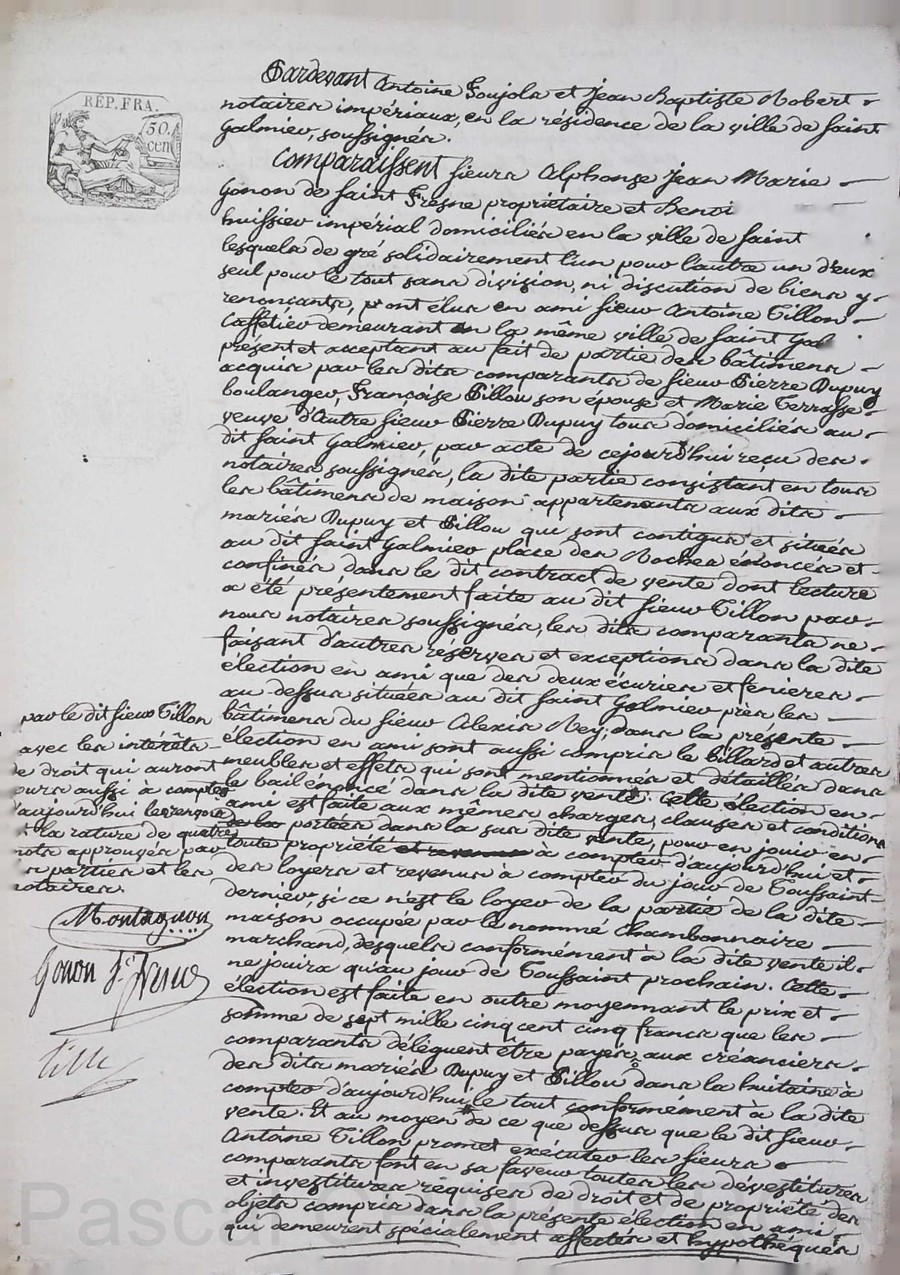 RÉP. FRA.
50.
cen
Pardevant Antoine Soujols et Jean Baptiste Robert
notaires impériaux, en la résidence de la ville de Saint
Galmier, soussignés.
Comparaissent Sieurs Alphonse Jean Marie
Gonon de Saint Fresne propriétaire et Benoi
huissier impérial domiciliés en la ville de Saint
lesquels de gré solidairement l'un pour l'autre un d'eux
seul pour le tout sans division, ni discution de biens y
renonçants, ont élus en ami Sieur Antoine Tillon
Caffetier demeurant en la même ville de Saint Gal
présent et acceptant au fait de partie des bâtimens
acquis par les dits comparants de Sieur Pierre Dupuy
boulanger, Françoise Pillou son épouse et Marie Terrasse
veuve d'autre Sieur Pierre Dupuy tous domiciliés au
dit Saint Galmier, par acte de cejourd'hui reçu des
notaires soussignés, la dite partie consistant en tous
les bâtimens de maison appartenants aux dits
mariés Dupuy et Pillou qui sont contigus et situés
au dit Saint Galmier place des Roches énoncés et
confinés dans le dit contract de vente dont lecture
a été présentement faite au dit Sieur Tillon par
nous notaires soussignés, les dits comparants ne
faisant d'autres réserves et exceptions dans la dite
élection en ami que des deux écuries et fenières
au-dessus situées au dit Saint Galmier près les
bâtimens du Sieur Alexis Rey; dans la présente
élection en ami sont aussi compris le billard et autres
meubles et effets qui sont mentionnés et détaillés dans
le bail énoncé dans la dite vente. Cette élection en
ami est faite aux mêmes charges, clauses et conditions
portées dans la sus dite vente, pour en jouir en
toute propriété à compter d'aujourd'hui et
des loyers et revenus à compter du jour de Toussaint
dernier, si ce n'est le loyer de la partie de la dite
maison occupée par le nommé Chambonnaire
marchand, desquels conformément à la dite vente il
ne jouira qu'au jour de Toussaint prochain. Cette
élection est faite en outre moyennant le prix et
somme de sept mille cinq cent cinq francs que les
comparants délèguent être payés aux créanciers
des dits mariés Dupuy et Pillou dans la huitaine à
compter d'aujourd'hui, le tout conformément à la dite
vente. Et au moyen de ce que dessus que le dit Sieur
Antoine Tillon promet exécuter les Sieurs
comparants font en sa faveur toutes les dévestitures
et investitures requises de droit et de propriété des
objets compris dans la présente élection en ami
qui demeurent spécialement affectés et hypothéqués
par le dit Sieur Tillon
avec les intérêts
de droit qui auront
cours aussi à compter
d'aujourd'hui
la rature de quatre
mots approuvés par
les parties et les
notaires.
Montagnon
Gonon St Fresne
Tillo
Pascal